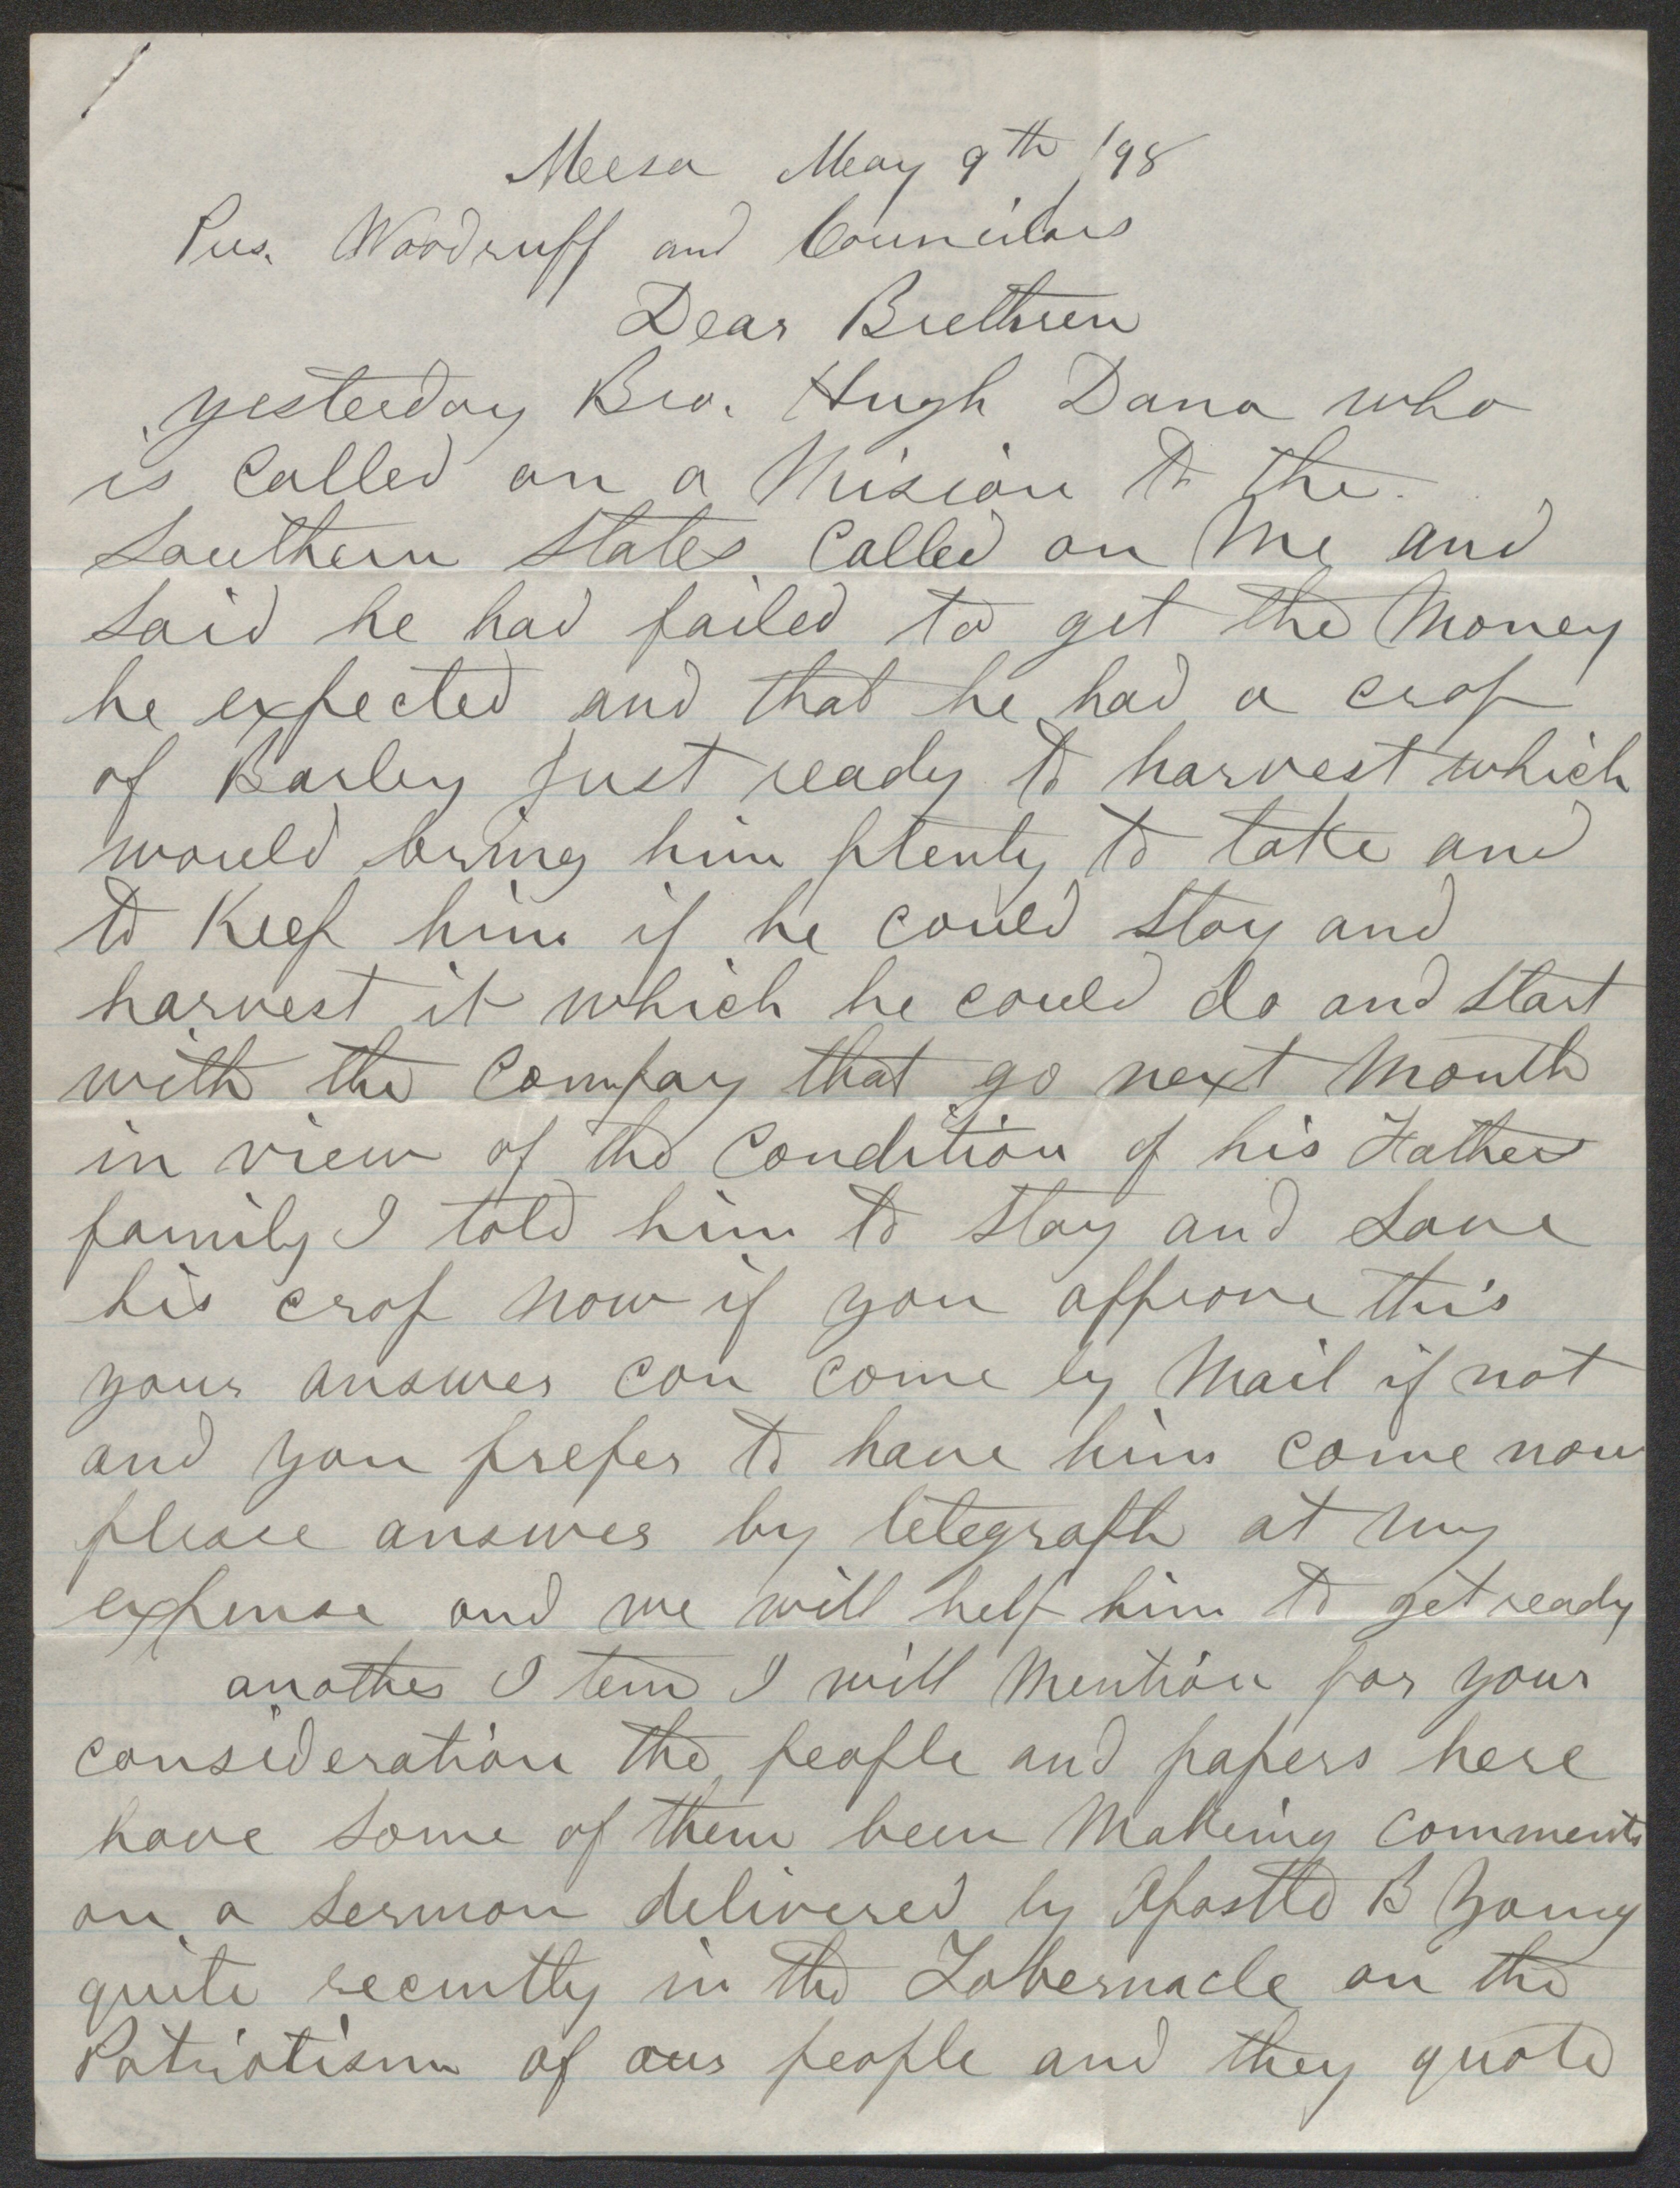 Meesa May 9th /98
Pres. Woodruff and Councilors
Dear Brethren
yesterday Bro. Hugh Dana who
is called on a Mision to the
Southern States called on Me and
said he had failed to get the Money
he expected and that he had a crop
of Barley Just ready to harvest which
would bring him plenty to take and
to Keep him if he could stay and
harvest it which he could do and start
with the Compay that go next Month
in view of the Condition of his Father
family I told him to stay and save
his crop now if you approve this
your answer can come by Mail if not
and you prefer to have him come now
please answer by telegraph at my
expense and we will help him to get ready
another I tem I will Mention for your
consideration the people and papers here
have some of them been Making comments
on a sermon delivered by Apostle B Young
quite recently in the Tabernacle on the
Patriotism of our people and they quote